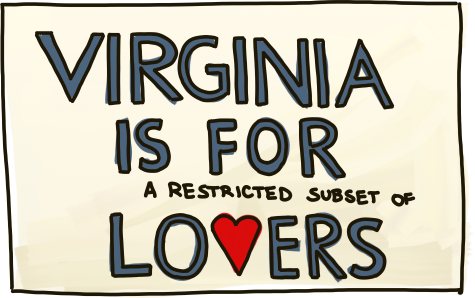 VIRGINIA
IS FOR
A RESTRICTED SUBSET OF
LOVERS